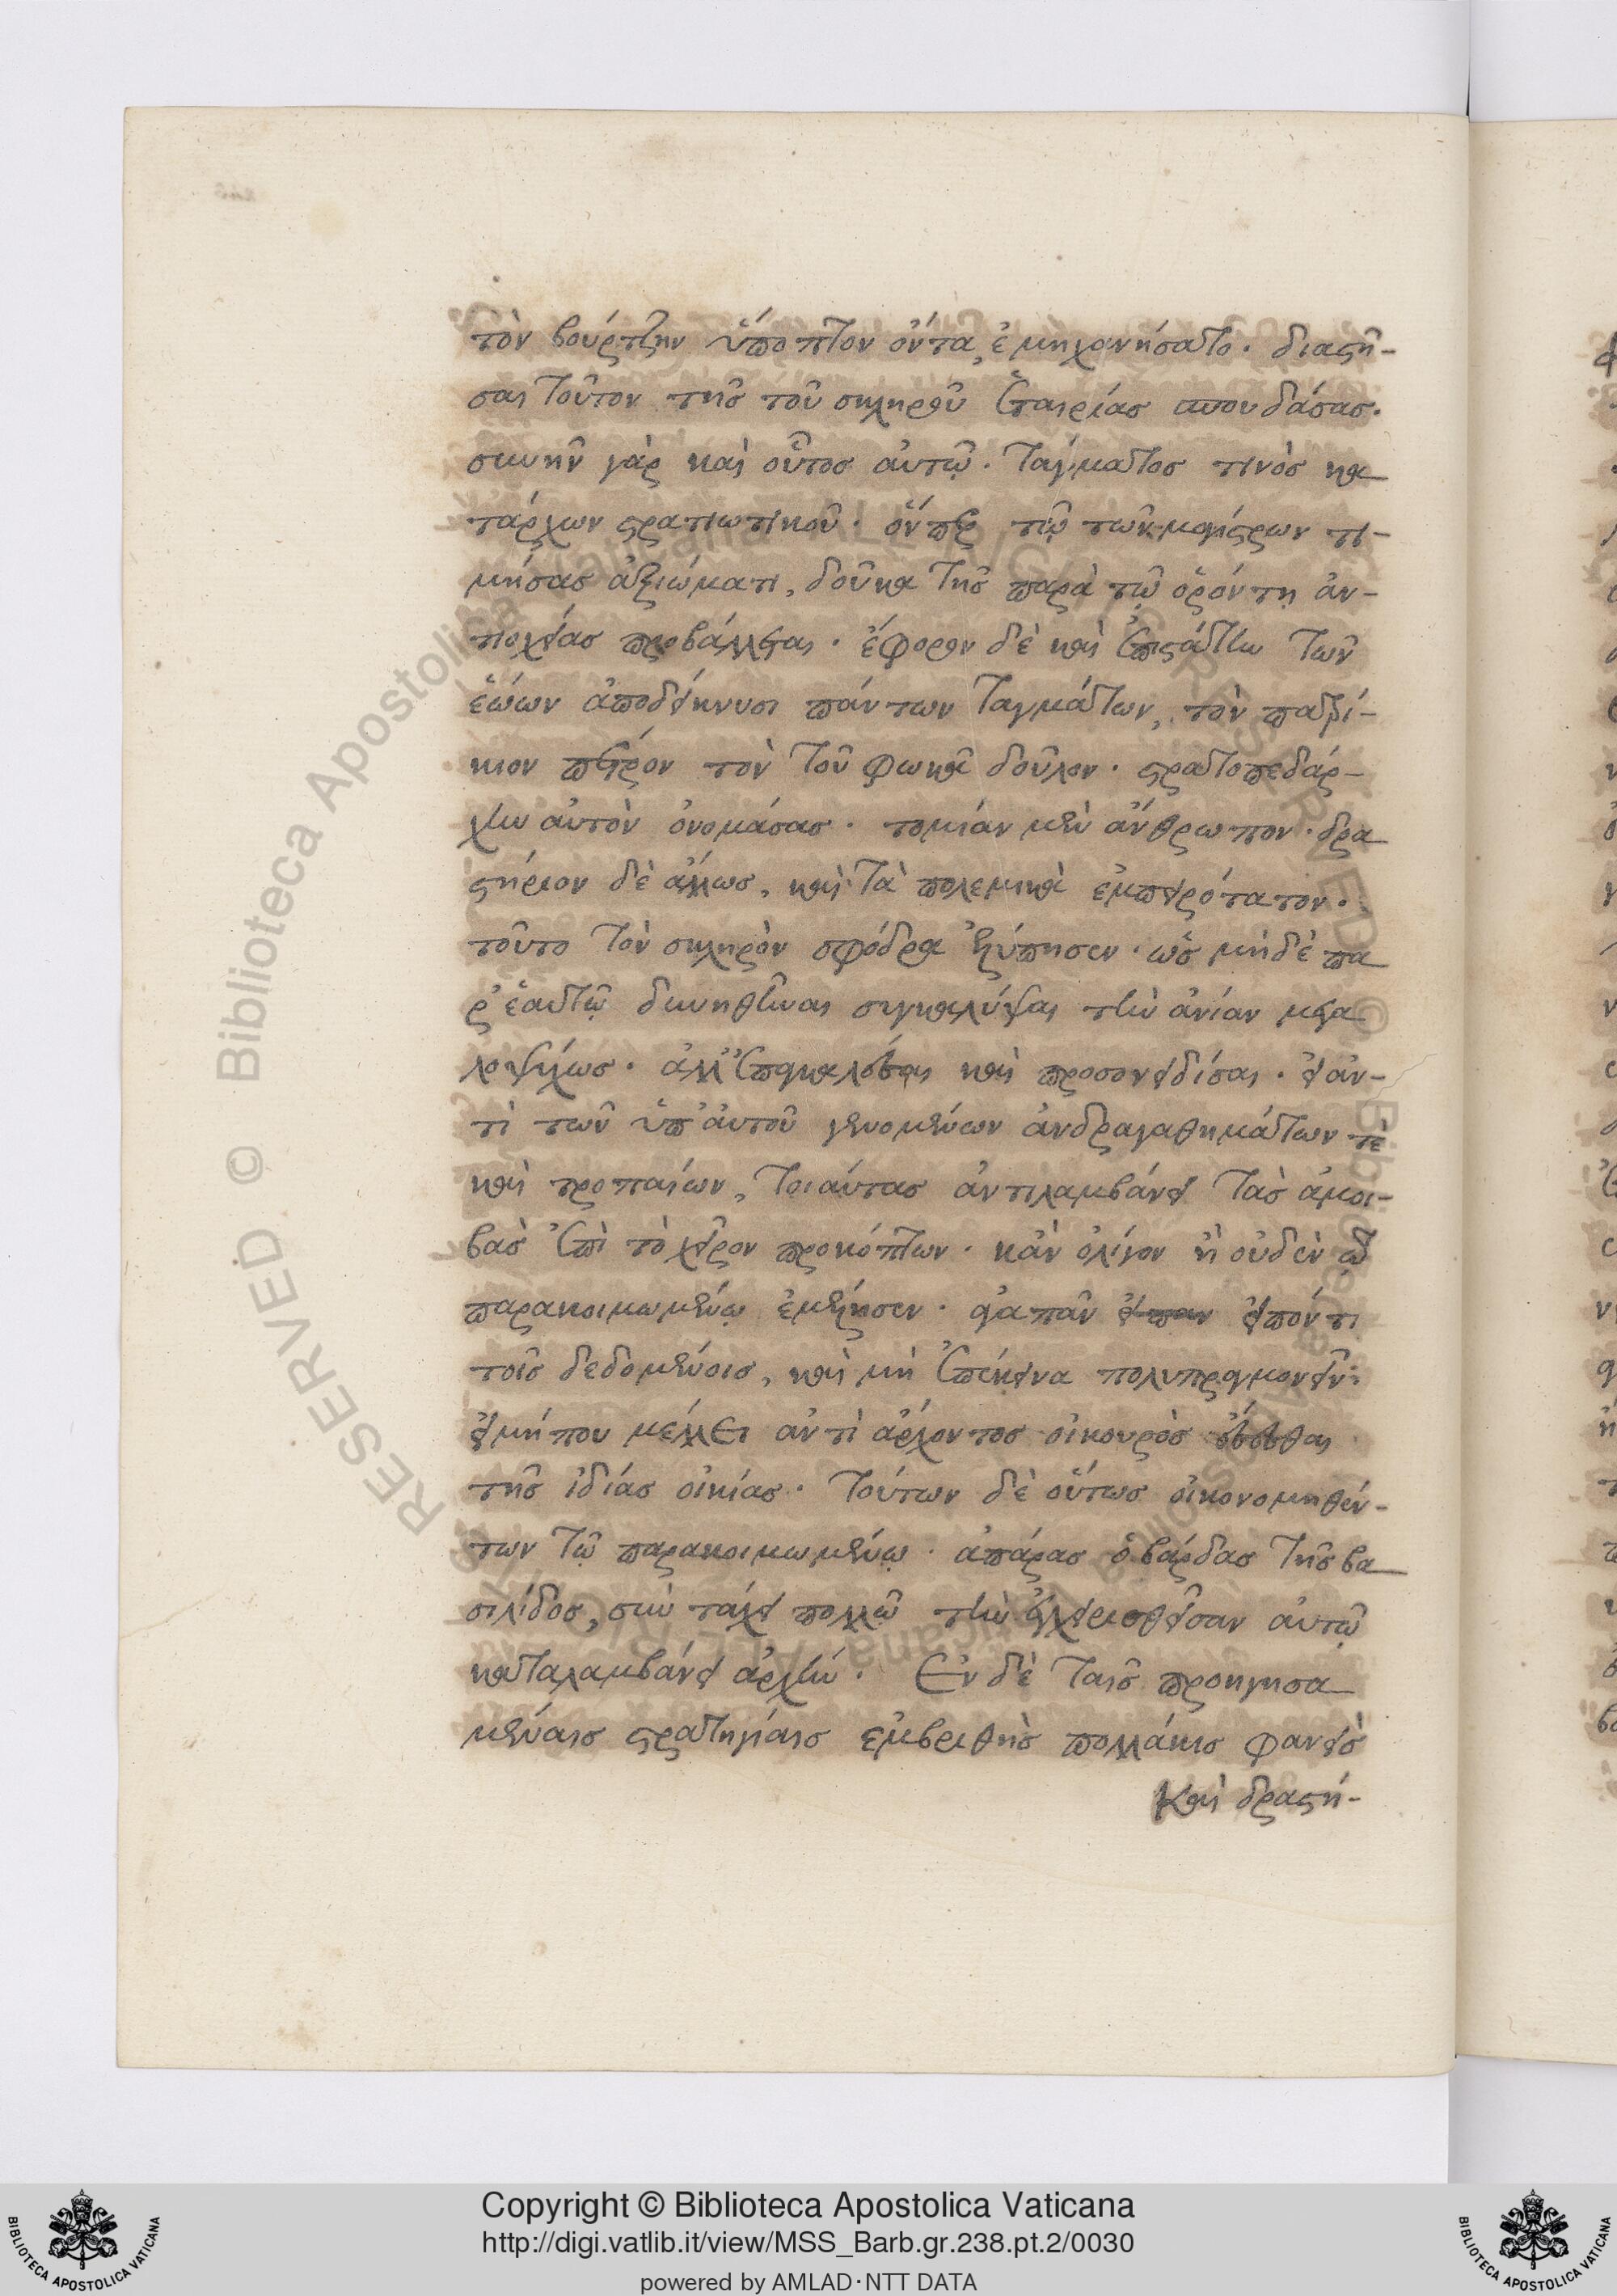 τὸν βούρτζην ὕποπτον ὄντα, ἐμηχανήσατο· διαστῆ-
σαι τοῦτον τῆς τοῦ σκληροῦ ἑταιρίας σπουδάσας·
συνῆν γὰρ καὶ οὗτος αὐτῷ· τάγματος τινὸς κα
τάρχων στρατιωτικοῦ· ὅνπερ τῷ τῶν μαγίστρων τι-
μήσας ἀξιώματι, δοῦκα τῆς παρὰ τῷ ὀρόντῃ ἀν-
τιοχείας προβάλλεται· ἔφορον δὲ καὶ ἐπιστάτην τῶν
ἑώων ἀποδείκνυσι πάντων ταγμάτων, τὸν πατρί-
κιον πέτρον τὸν τοῦ φωκᾶ δοῦλον· στρατοπεδάρ-
χην αὐτὸν ὀνομάσας· τομίαν μὲν ἄνθρωπον· δρα
στήριον δὲ ἄλλως, καὶ τὰ πολεμικὰ ἐμπειρότατον·
τοῦτο τὸν σκληρὸν σφόδρα ἐλύπησεν· ὡς μηδὲ πα
ρ' ἑαυτῷ δυνηθῆναι συγκαλύψαι τὴν ἀνίαν μεγα
λοψύχως· ἀλλ' ἐπεγκαλέσαι καὶ προσονειδίσαι· εἰ ἀν-
τὶ τῶν ὑπ' αὐτοῦ γενομένων ἀνδραγαθημάτων τὲ
καὶ τροπαίων, τοιαύτας ἀντιλαμβάνει τὰς ἀμοι-
βὰς ἐπὶ τὸ χεῖρον προκόπτων· κἂν ὀλίγον ἢ οὐδὲν τῷ
παρακοιμωμένῳ ἐμέλησεν· ἀγαπᾶν εἰπόντι
τοῖς δεδομένοις, καὶ μὴ ἐπέκεινα πολυπραγμονεῖν·
εἰ μήπου μέλλει ἀντὶ ἄρχοντος οἰκουρὸς ἔσεσθαι
τῆς ἰδίας οἰκίας· τούτων δὲ οὕτως οἰκονομηθέν-
των τῷ παρακοιμωμένῳ· ἀπάρας ὁ βάρδας τῆς βα
σιλίδος, σὺν τάχει πολλῷ τὴν ἐγχειρισθεῖσαν αὐτῷ
καταλαμβάνει ἀρχήν· Ἐν δὲ ταῖς προηγησα
μέναις στρατηγίαις ἐμβριθὴς πολλάκις φανεὶς
Καὶ δραστή-
RESERVED © Biblioteca Apostolica Vaticana ALL RIGHTS RESERVED © Biblioteca Apostolica Vaticana ALL RIGHTS
Copyright © Biblioteca Apostolica Vaticana
http://digi.vatlib.it/view/MSS_Barb.gr.238.pt.2/0030
powered by AMLAD·NTT DATA
BIBLIOTECA APOSTOLICA VATICANA
BIBLIOTECA APOSTOLICA VATICANA